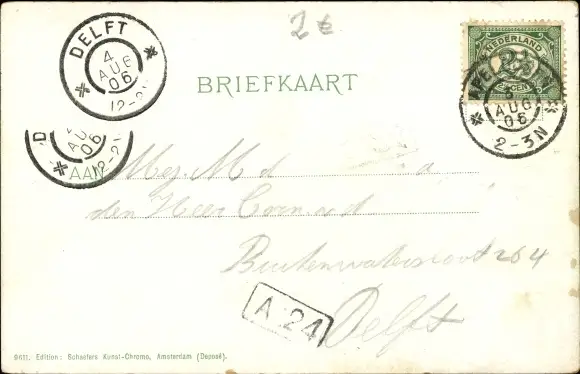 2 €
DELFT
4
AUG
06
12-
BRIEFKAART
NEDERLAND
2½
CENT
APEL
3
AUG
06
2-3N
D
AUG
06
12-2
AAN Mej. M d a
den Heer Coen
Buitenwatersloot 264
A 24
Delft
9611. Edition: Schaefers Kunst-Chromo, Amsterdam (Deposé).